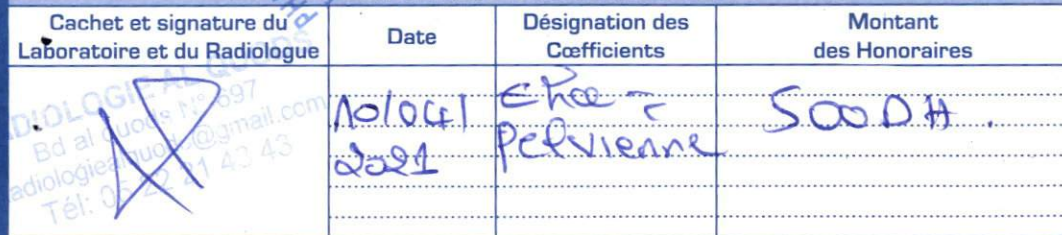 Cachet et signature du
Laboratoire et du Radiologue
Date
Désignation des
Cœfficients
Montant
des Honoraires
RADIOLOGIE AL QUODS
Bd al quods N° 697
Tél: 05 22 21 43 43
10/04/
2021
Echo -
Pelvienne
500DH.